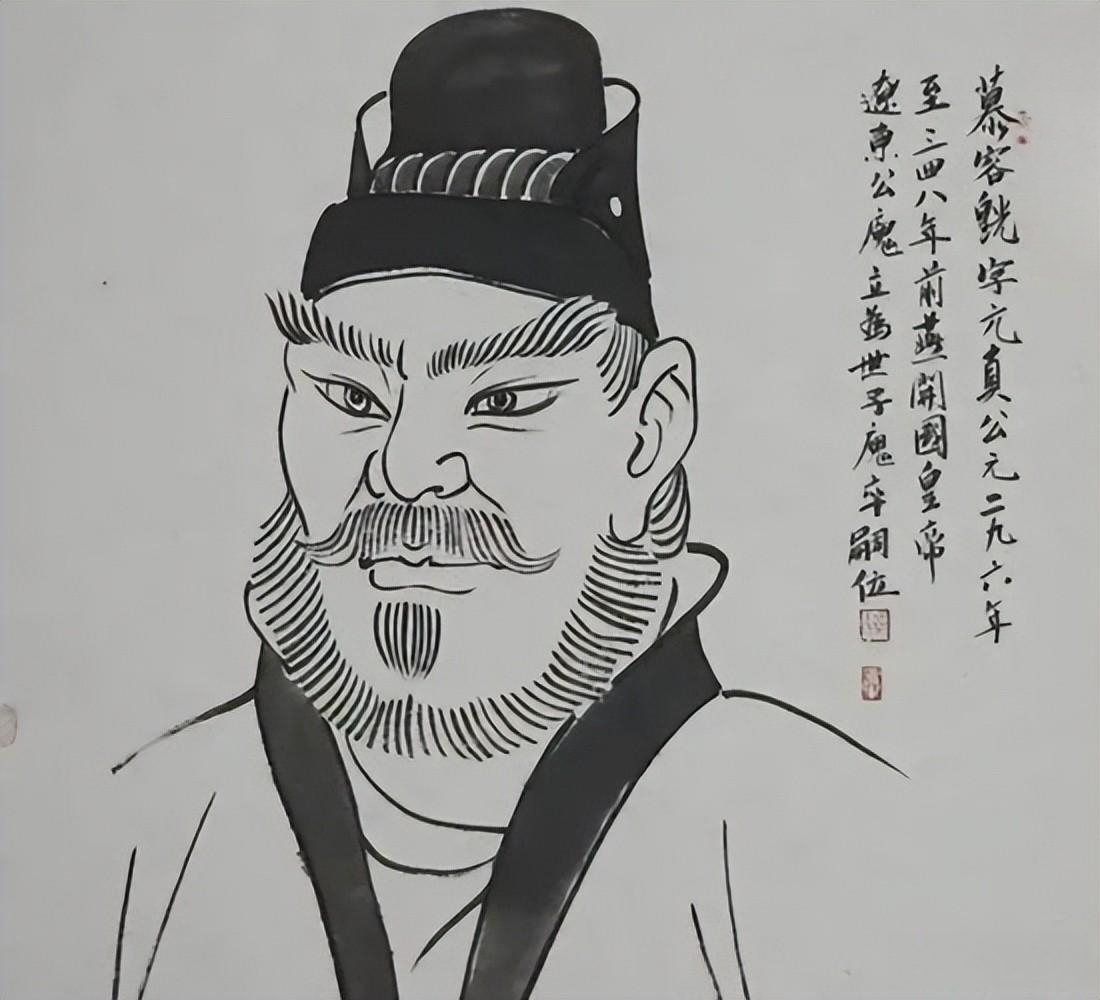 慕容皝字元真公元二九六年
至三四八年前燕開國皇帝
遼東公廆立為世子廆卒嗣位